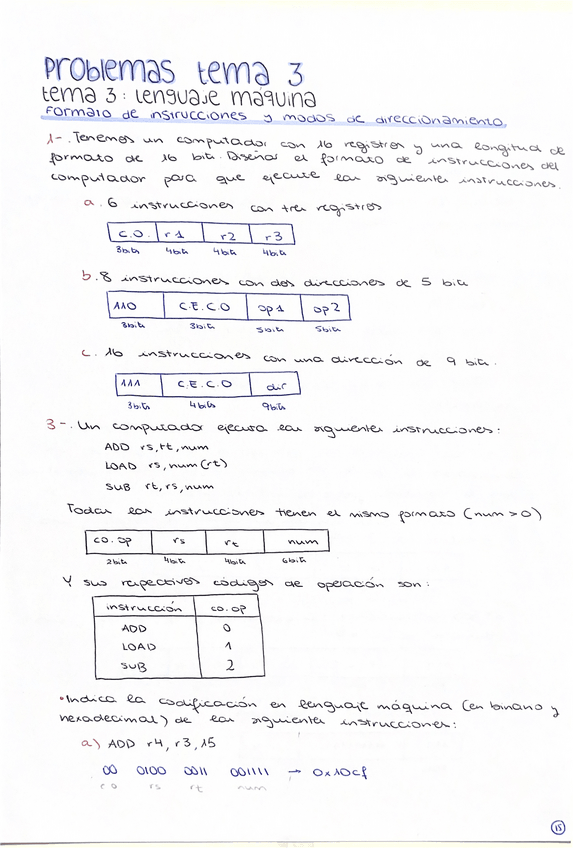 Problemas tema 3
tema 3: Lenguaje máquina
Formato de instrucciones y modos de direccionamiento.
1-. Tenemos un computador con 16 registros y una longitud de
formato de 16 bits. Diseñar el formato de instrucciones del
computador para que ejecute las siguientes instrucciones.
a. 6 instrucciones con tres registros
C.O. r1 r2 r3
3bits 4bits 4bits 4bits
b. 8 instrucciones con dos direcciones de 5 bits
110 C.E.C.O op1 op2
3bits 3bits 5bits 5bits
c. 16 instrucciones con una dirección de 9 bits.
111 C.E.C.O dir
3bits 4bits 9bits
3-. Un computador ejecuta las siguientes instrucciones:
ADD rs,rt,num
LOAD rs,num(rt)
SUB rt,rs,num
Todas las instrucciones tienen el mismo formato (num>0)
co.op rs rt num
2bits 4bits 4bits 6bits
Y sus respectivos códigos de operación son:
instrucción co.op
ADD 0
LOAD 1
SUB 2
•Indica la codificación en lenguaje máquina (en binario y
hexadecimal) de las siguientes instrucciones:
a) ADD r4, r3, 15
00 0100 0011 001111 → 0x10cf
co rs rt num
15